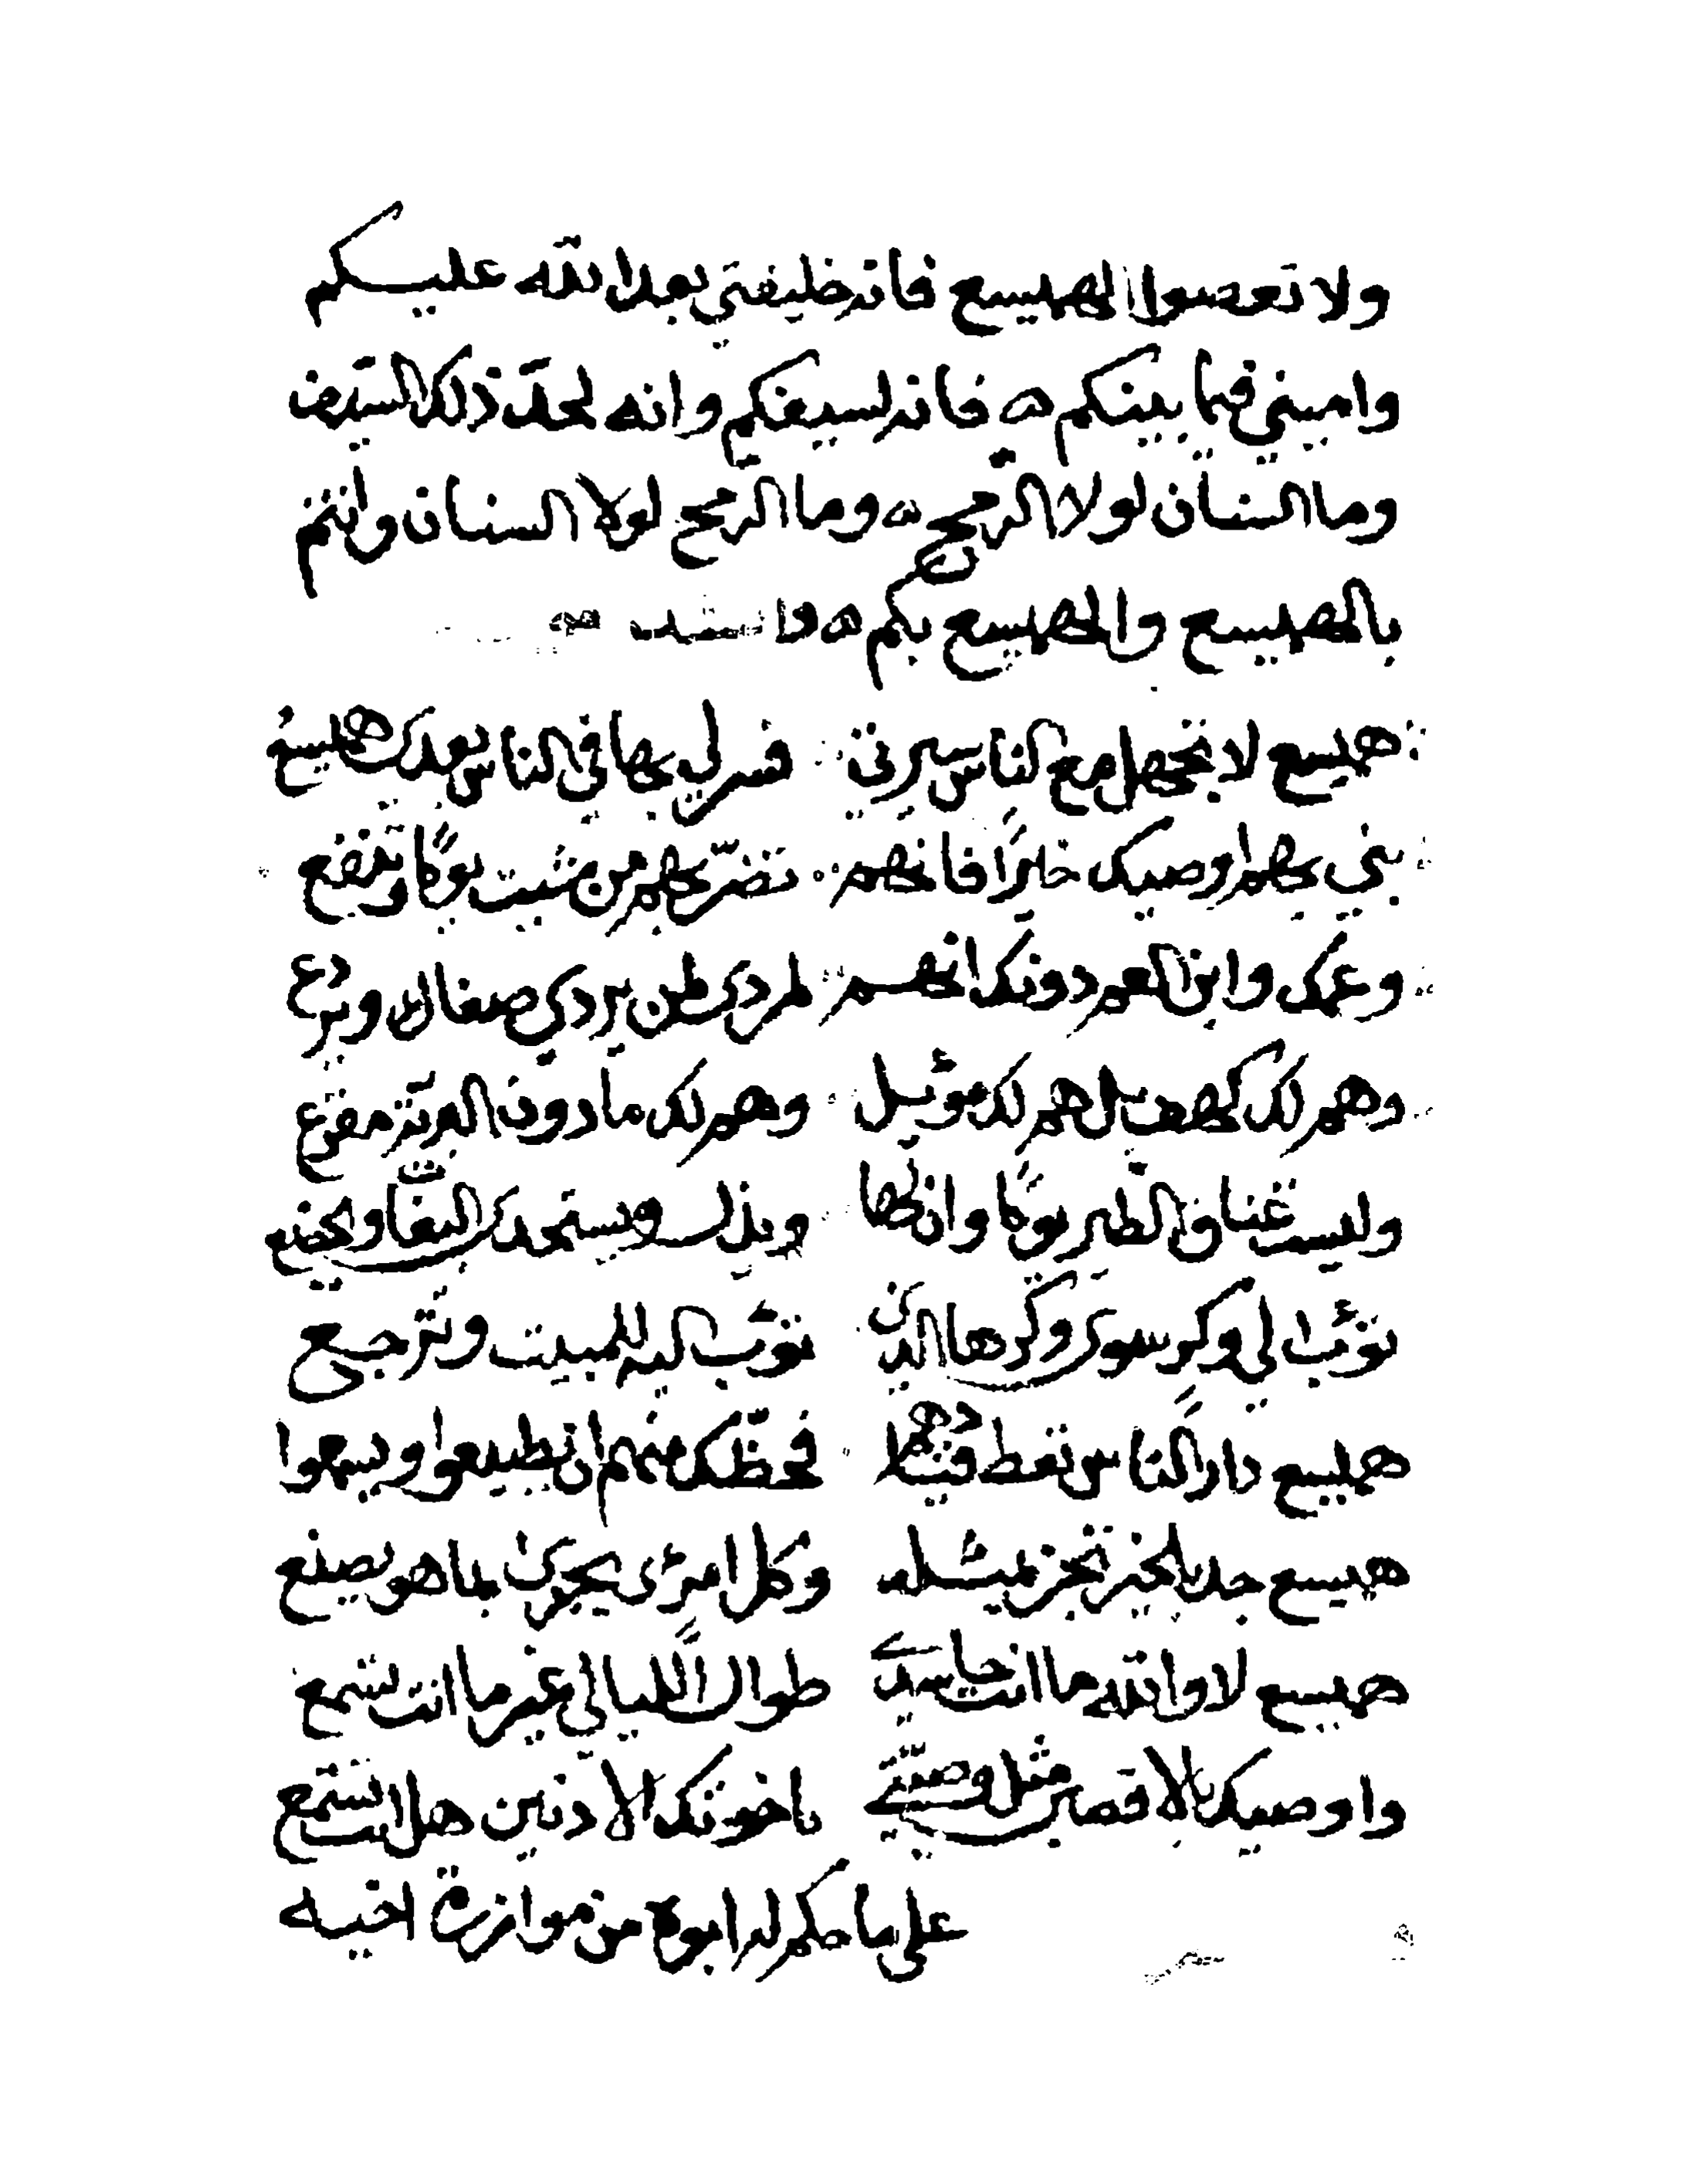 ولا تعصوا الهميسع فانه خليفتي بعد الله عليكم
واميني فيما بينكم ه فانه لسيفكم وانه لحد ذلك السيف
وما السنان لولا الرمح ه وما الرمح لولا السنان وانتم
بالهميسع والهميسع بكم ه وانشد
هميسع لا تجهل مع الناس سيرتي فسر لي بها في الناس بعدك هميسع
بني بهم اوصيك خيرًا فانهم تضرّ بهم من شيت يومًا وتنفع
وعمك وابن العم دونك انهم لمردى من يردي صفاك ويرع
وهم لك كهف بل هم لك موئيل وهم لك ما دون البرية مفزع
وليست عتاق الطير يومًا وان لها وبذل ويستحدك البغاث ويخضع
تؤب الي وكرٍ سوى وكرها الذي تؤب اليه للمبيت وترجع
هميسع دار الناس تعط قيادهم فحظّك منهم ان يطيعوا ويسمعوا
هميسع جد بالخير تجز بمثله وكل امرئ يجزى بما هو يصنع
هميسع لا والله ما انت طوال الليالي غير ما انت تسمع
واوصيك بالاقصين مثل وصيتي باخوتك الادنين هل انت تسمع
على ما حكم له ابوه من موازرة اخيه